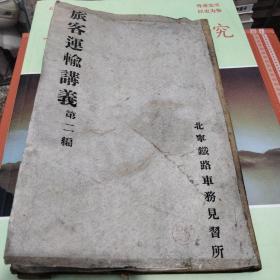 旅客運輸講義 第二編
北寧鐵路車務見習所
究